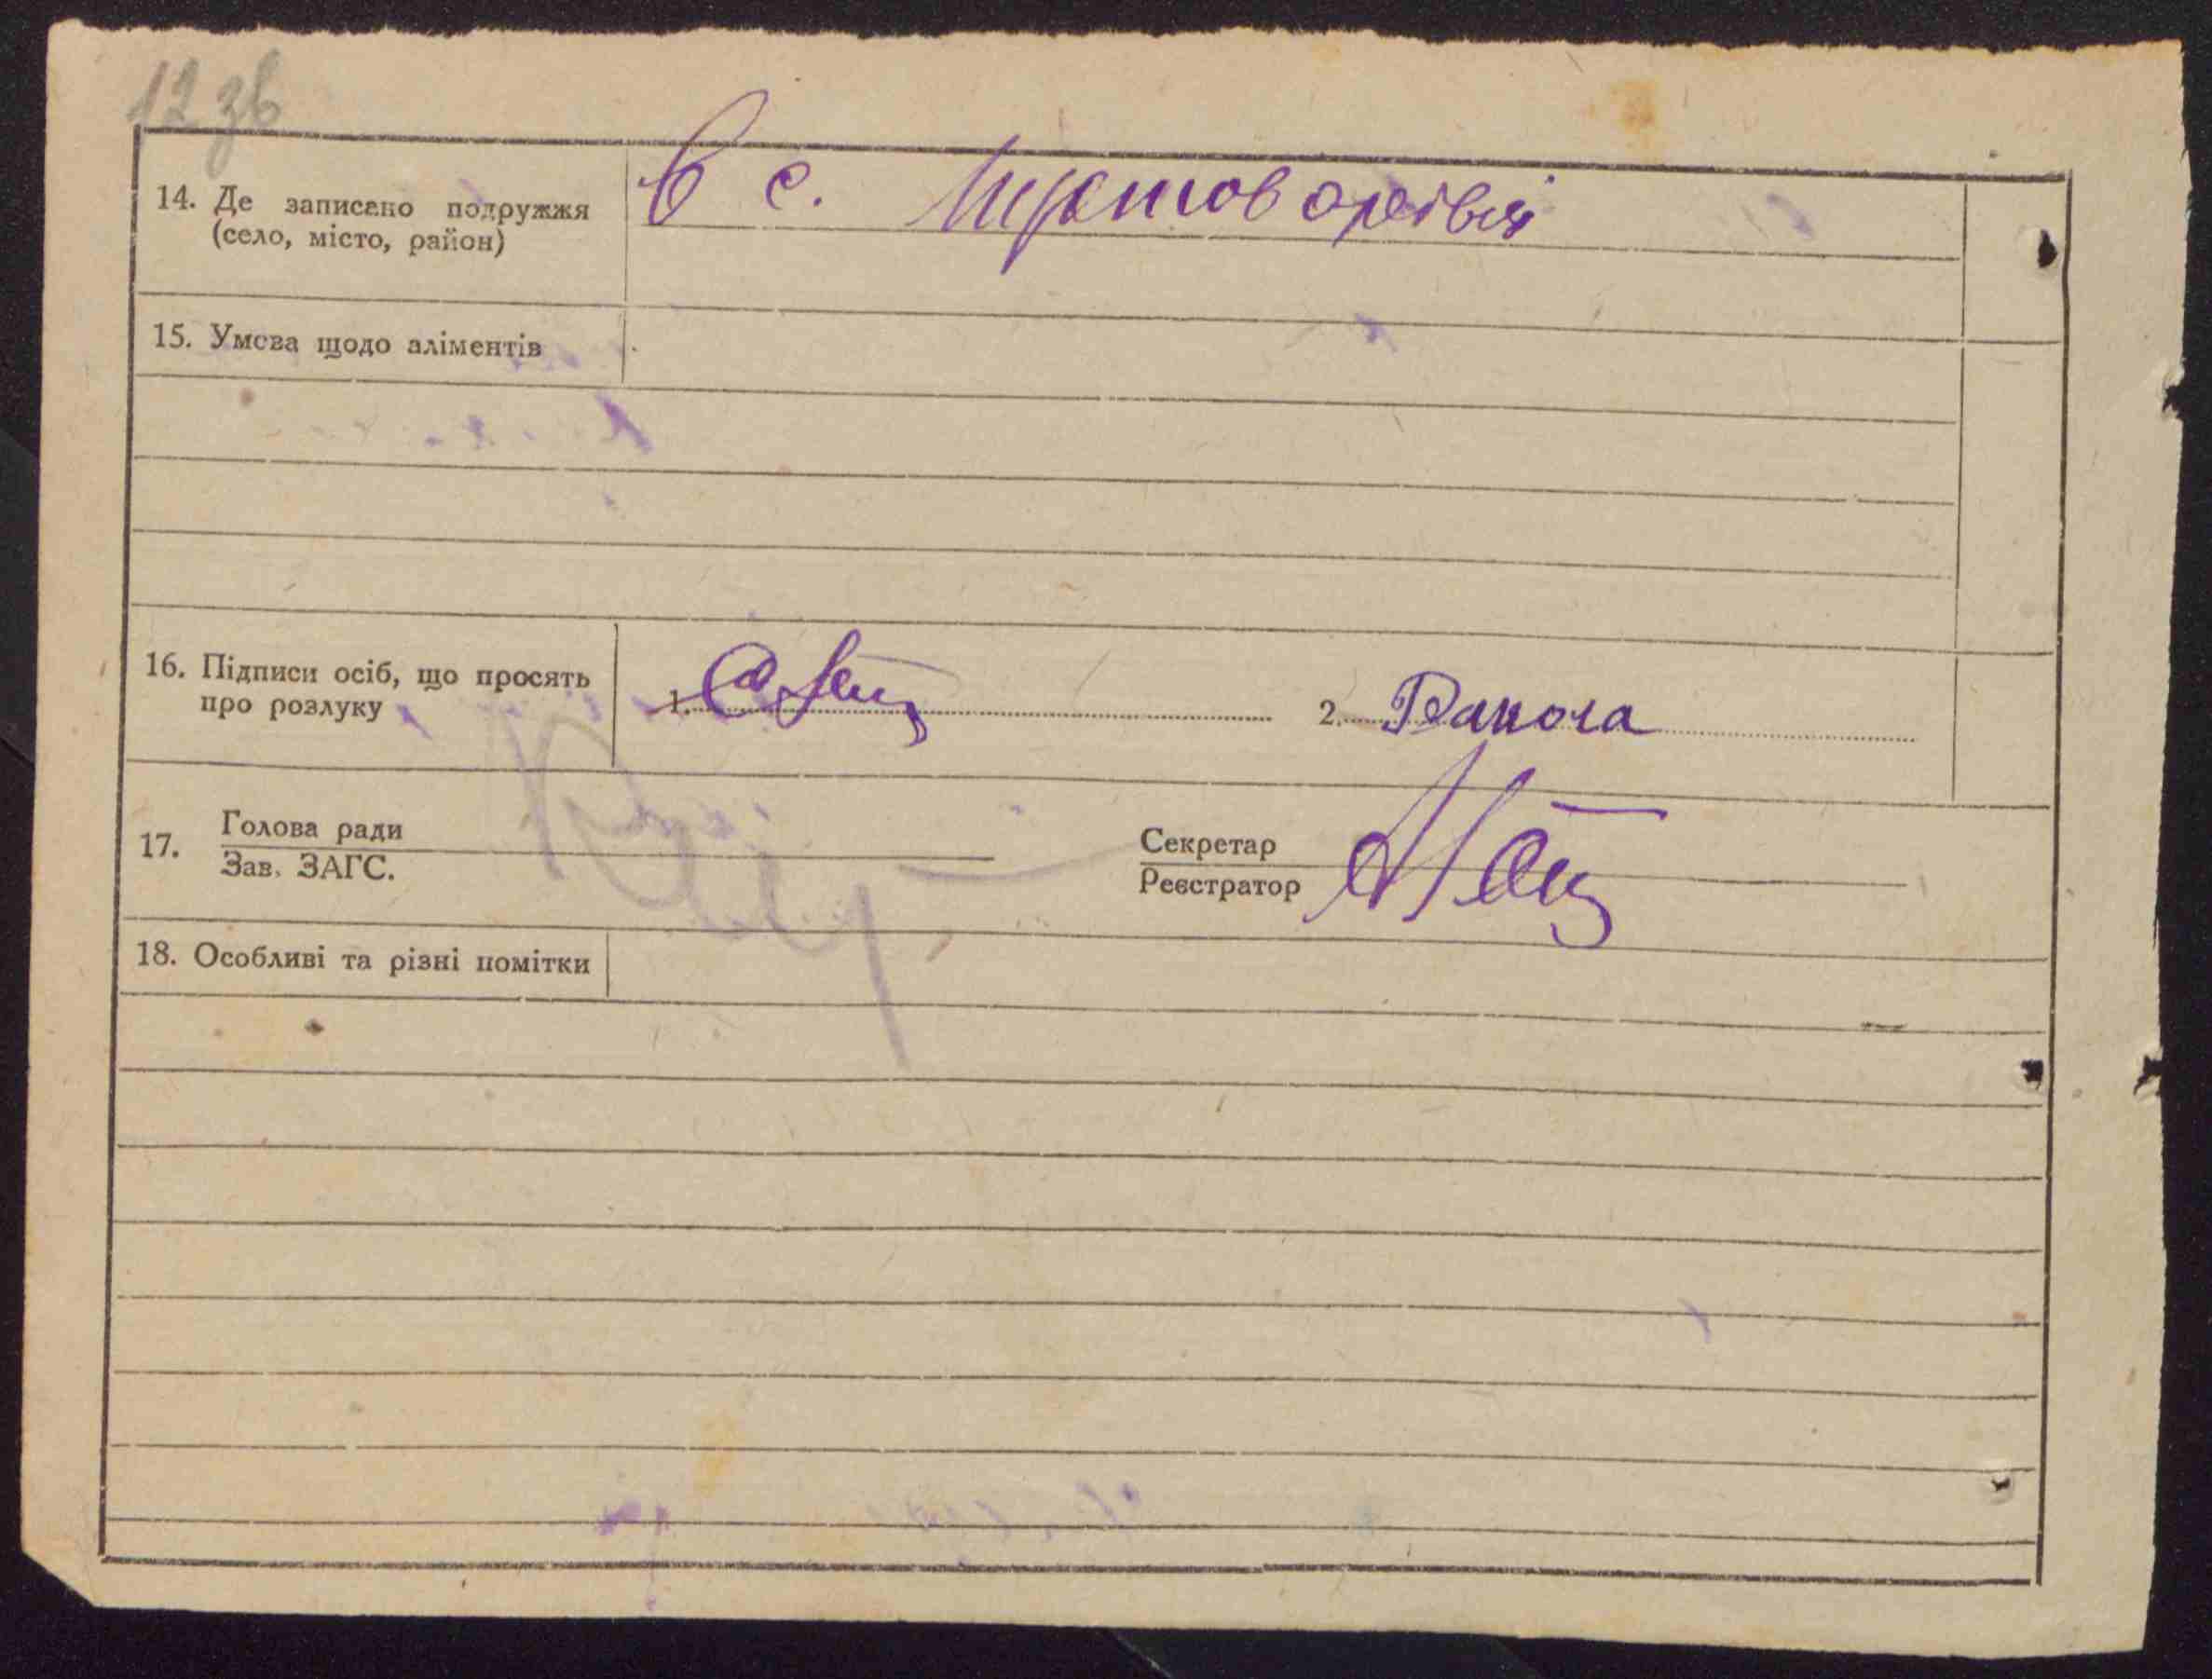 12 зв
14. Де записано подружжя
(село, місто, район)
В с.
15. Умова щодо аліментів
16. Підписи осіб, що просять
про розлуку
1.
2.
17. Голова ради
Зав. ЗАГС.
Секретар
Реєстратор
18. Особливі та різні помітки